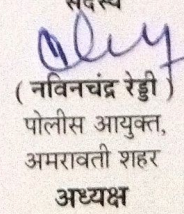 सदस्य
( नविनचंद्र रेड्डी )
पोलीस आयुक्त,
अमरावती शहर
अध्यक्ष